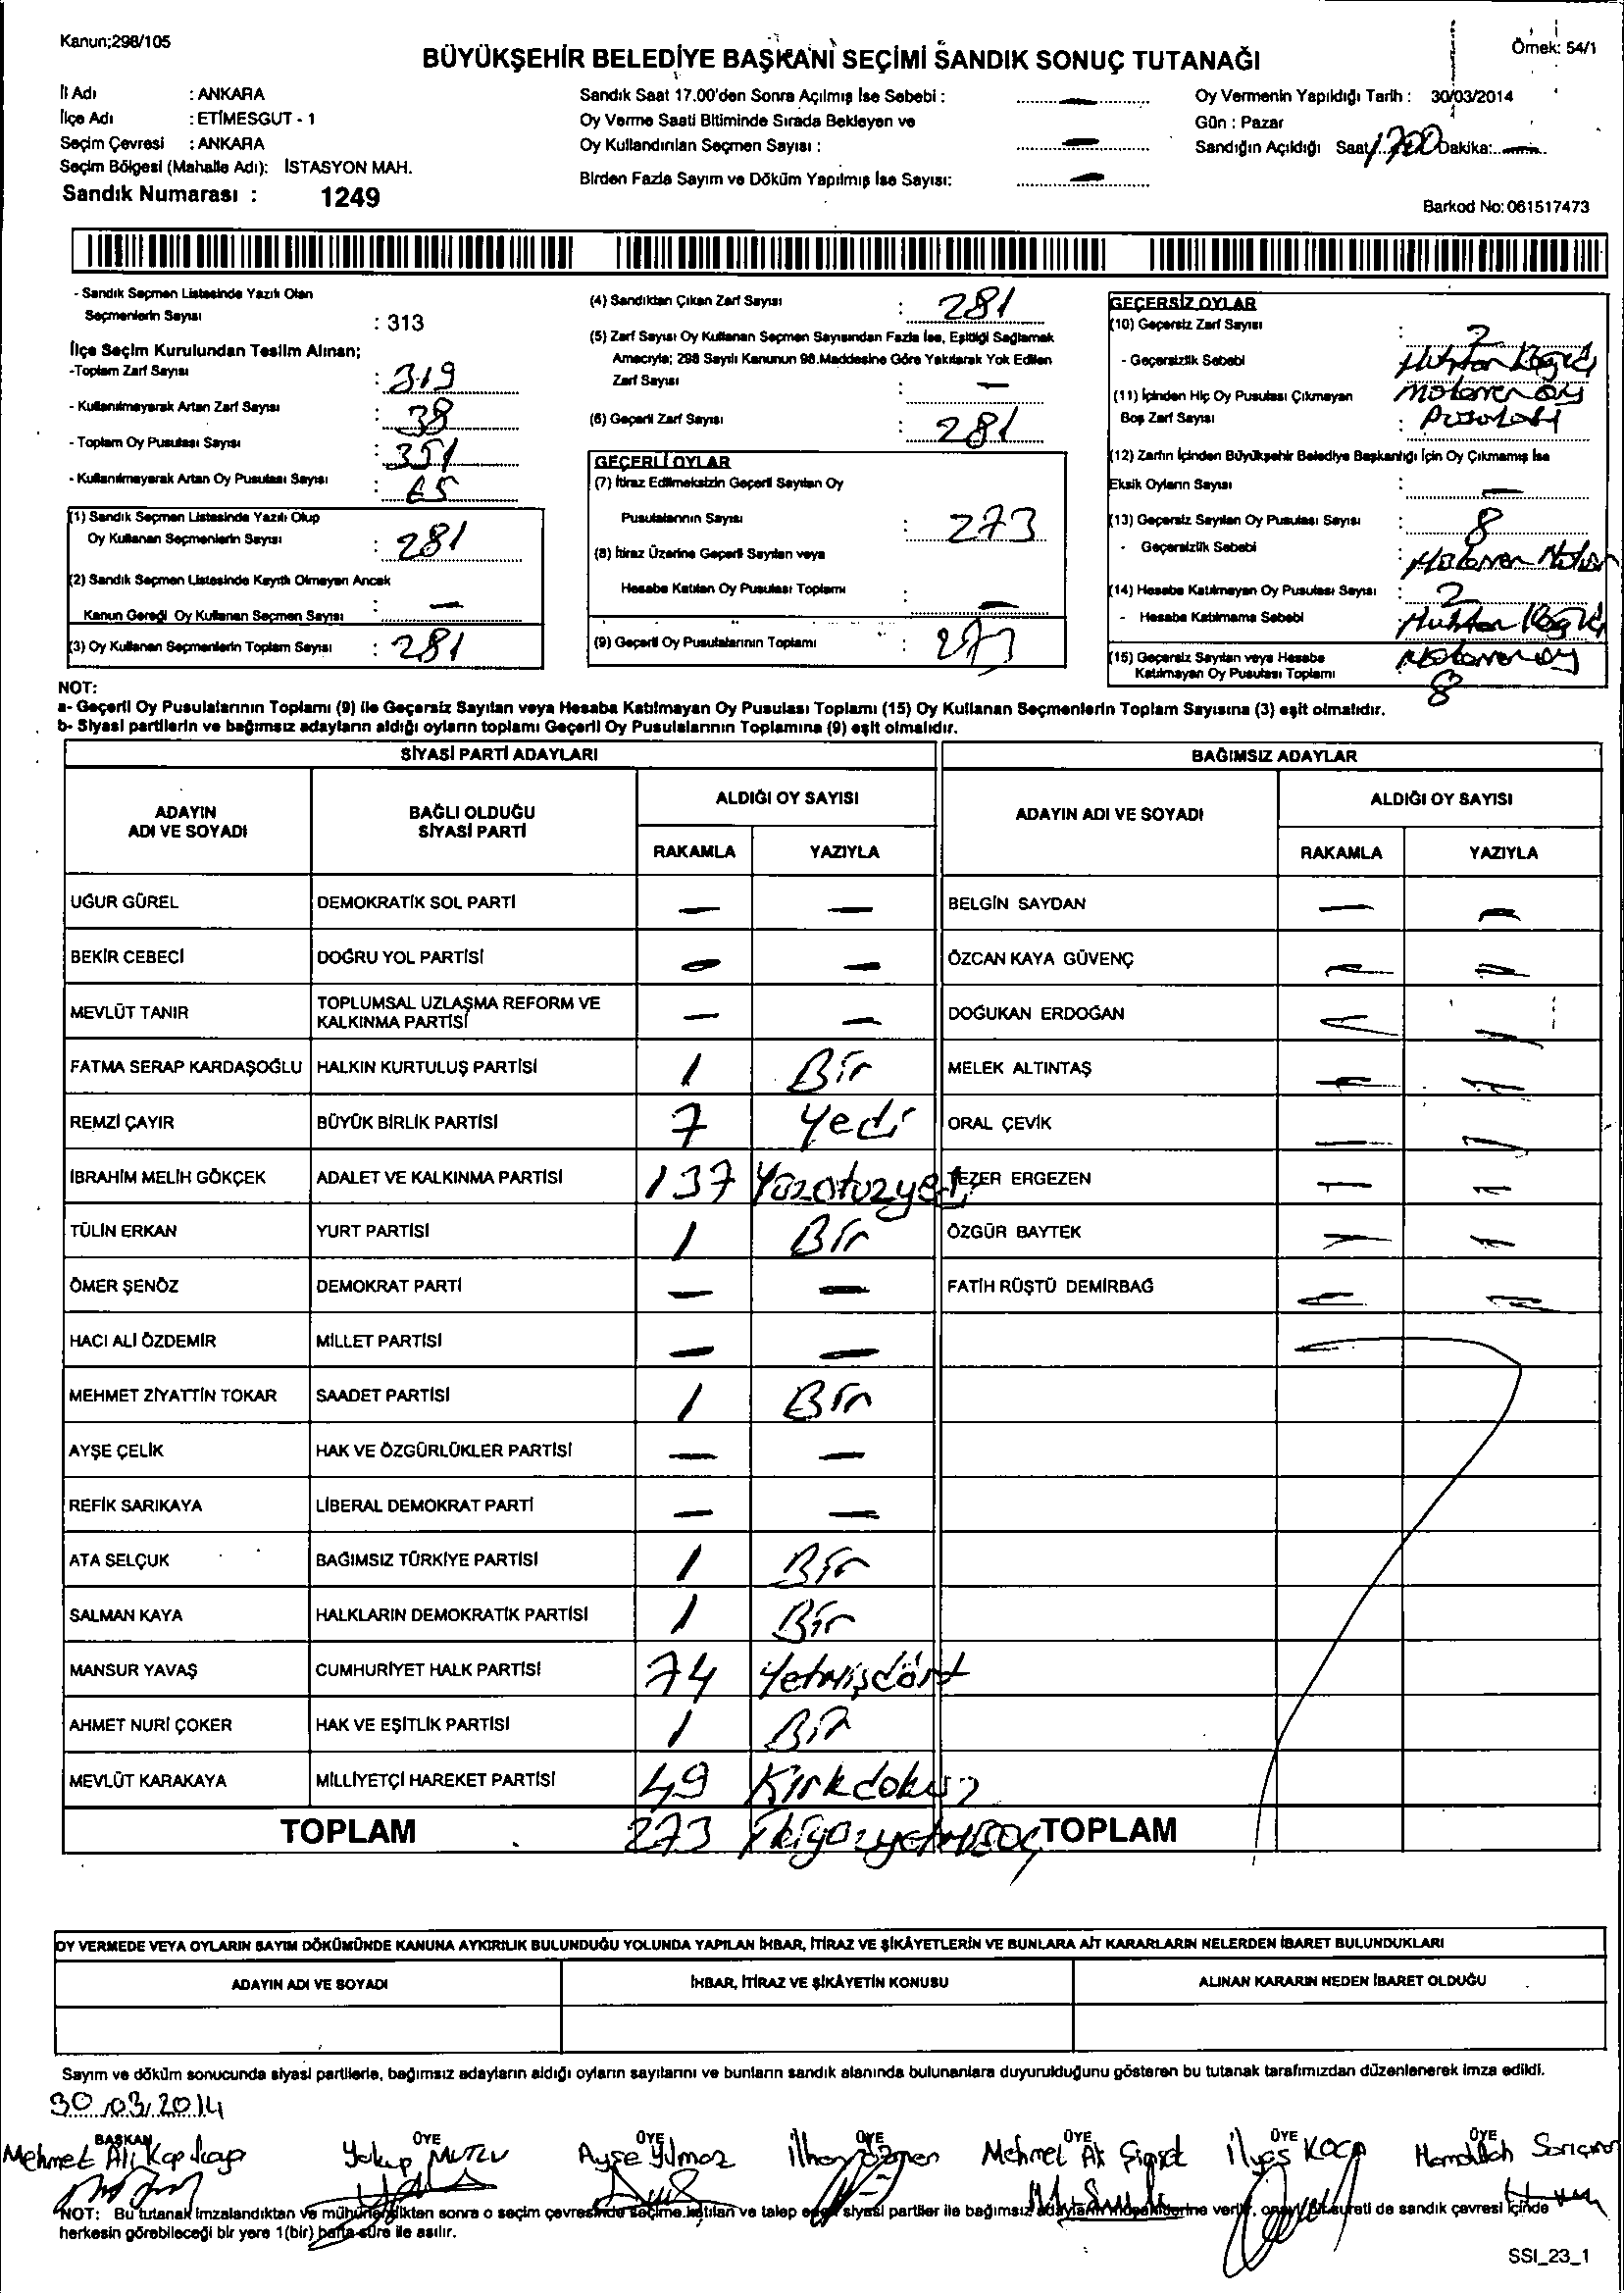 Kanun;298/105
Örnek: 54/1
BÜYÜKŞEHİR BELEDİYE BAŞKANI SEÇİMİ SANDIK SONUÇ TUTANAĞI
İl Adı : ANKARA
İlçe Adı : ETİMESGUT - 1
Seçim Çevresi : ANKARA
Seçim Bölgesi (Mahalle Adı): İSTASYON MAH.
Sandık Numarası : 1249
Sandık Saat 17.00'den Sonra Açılmış İse Sebebi : —
Oy Verme Saati Bitiminde Sırada Bekleyen ve
Oy Kullandırılan Seçmen Sayısı : —
Birden Fazla Sayım ve Döküm Yapılmış İse Sayısı: —
Oy Vermenin Yapıldığı Tarih : 30/03/2014
Gün : Pazar
Sandığın Açıldığı Saat 1700 Dakika: —
Barkod No: 061517473
- Sandık Seçmen Listesinde Yazılı Olan
Seçmenlerin Sayısı : 313
İlçe Seçim Kurulundan Teslim Alınan;
-Toplam Zarf Sayısı : 319
- Kullanılmayarak Artan Zarf Sayısı : 38
- Toplam Oy Pusulası Sayısı : 351
- Kullanılmayarak Artan Oy Pusulası Sayısı :
(1) Sandık Seçmen Listesinde Yazılı Olup
Oy Kullanan Seçmenlerin Sayısı : 281
(2) Sandık Seçmen Listesinde Kayıtlı Olmayan Ancak
Kanun Gereği Oy Kullanan Seçmen Sayısı : —
(3) Oy Kullanan Seçmenlerin Toplam Sayısı : 281
(4) Sandıktan Çıkan Zarf Sayısı : 281
(5) Zarf Sayısı Oy Kullanan Seçmen Sayısından Fazla İse, Eşitliği Sağlamak
Amacıyla; 298 Sayılı Kanunun 98.Maddesine Göre Yakılarak Yok Edilen
Zarf Sayısı : —
(6) Geçerli Zarf Sayısı : 281
GEÇERLİ OYLAR
(7) İtiraz Edilmeksizin Geçerli Sayılan Oy
Pusulalarının Sayısı : 273
(8) İtiraz Üzerine Geçerli Sayılan veya
Hesaba Katılan Oy Pusulası Toplamı : —
(9) Geçerli Oy Pusulalarının Toplamı : 273
GEÇERSİZ OYLAR
(10) Geçersiz Zarf Sayısı : 2
- Geçersizlik Sebebi
(11) İçinden Hiç Oy Pusulası Çıkmayan
Boş Zarf Sayısı :
(12) Zarfın İçinden Büyükşehir Belediye Başkanlığı İçin Oy Çıkmamış İse
Eksik Oyların Sayısı : —
(13) Geçersiz Sayılan Oy Pusulası Sayısı : 8
- Geçersizlik Sebebi :
(14) Hesaba Katılmayan Oy Pusulası Sayısı : 2
- Hesaba Katılmama Sebebi :
(15) Geçersiz Sayılan veya Hesaba
Katılmayan Oy Pusulası Toplamı 8
NOT:
a- Geçerli Oy Pusulalarının Toplamı (9) ile Geçersiz Sayılan veya Hesaba Katılmayan Oy Pusulası Toplamı (15) Oy Kullanan Seçmenlerin Toplam Sayısına (3) eşit olmalıdır.
b- Siyasi partilerin ve bağımsız adayların aldığı oyların toplamı Geçerli Oy Pusulalarının Toplamına (9) eşit olmalıdır.
SİYASİ PARTİ ADAYLARI BAĞIMSIZ ADAYLAR
ADAYIN ADI VE SOYADI BAĞLI OLDUĞU SİYASİ PARTİ ALDIĞI OY SAYISI ADAYIN ADI VE SOYADI ALDIĞI OY SAYISI
RAKAMLA YAZIYLA RAKAMLA YAZIYLA
UĞUR GÜREL DEMOKRATİK SOL PARTİ — — BELGİN SAYDAN — —
BEKİR CEBECİ DOĞRU YOL PARTİSİ — — ÖZCAN KAYA GÜVENÇ — —
MEVLÜT TANIR TOPLUMSAL UZLAŞMA REFORM VE KALKINMA PARTİSİ — — DOĞUKAN ERDOĞAN — —
FATMA SERAP KARDAŞOĞLU HALKIN KURTULUŞ PARTİSİ 1 Bir MELEK ALTINTAŞ — —
REMZİ ÇAYIR BÜYÜK BİRLİK PARTİSİ 7 Yedi ORAL ÇEVİK — —
İBRAHİM MELİH GÖKÇEK ADALET VE KALKINMA PARTİSİ 137 Yüzotuzyedi EZER ERGEZEN — —
TÜLİN ERKAN YURT PARTİSİ 1 Bir ÖZGÜR BAYTEK — —
ÖMER ŞENÖZ DEMOKRAT PARTİ — — FATİH RÜŞTÜ DEMİRBAĞ — —
HACI ALİ ÖZDEMİR MİLLET PARTİSİ — —
MEHMET ZİYATTİN TOKAR SAADET PARTİSİ 1 Bir
AYŞE ÇELİK HAK VE ÖZGÜRLÜKLER PARTİSİ — —
REFİK SARIKAYA LİBERAL DEMOKRAT PARTİ — —
ATA SELÇUK BAĞIMSIZ TÜRKİYE PARTİSİ 1 Bir
SALMAN KAYA HALKLARIN DEMOKRATİK PARTİSİ 1 Bir
MANSUR YAVAŞ CUMHURİYET HALK PARTİSİ 74 Yetmişdört
AHMET NURİ ÇOKER HAK VE EŞİTLİK PARTİSİ 1 Bir
MEVLÜT KARAKAYA MİLLİYETÇİ HAREKET PARTİSİ 49 Kırkdokuz
TOPLAM 273 İkiyüzyetmişüç TOPLAM
OY VERMEDE VEYA OYLARIN SAYIM DÖKÜMÜNDE KANUNA AYKIRILIK BULUNDUĞU YOLUNDA YAPILAN İHBAR, İTİRAZ VE ŞİKÂYETLERİN VE BUNLARA AİT KARARLARIN NELERDEN İBARET BULUNDUKLARI
ADAYIN ADI VE SOYADI İHBAR, İTİRAZ VE ŞİKÂYETİN KONUSU ALINAN KARARIN NEDEN İBARET OLDUĞU
Sayım ve döküm sonucunda siyasi partilerle, bağımsız adayların aldığı oyların sayılarını ve bunların sandık alanında bulunanlara duyurulduğunu gösteren bu tutanak tarafımızdan düzenlenerek imza edildi.
30/03/2014
BAŞKAN ÜYE ÜYE ÜYE ÜYE ÜYE ÜYE
Mehmet Ali Yakup MUTLU Ayşe Yılmaz İlhan Mehmet İlyas KOCA
NOT: Bu tutanak imzalandıktan ve mühürlendikten sonra o seçim çevresinde seçime katılan ve talep eden siyasi partiler ile bağımsız adayların müşahitlerine verilir, onaylı bir sureti de sandık çevresi içinde
herkesin görebileceği bir yere 1(bir) hafta süre ile asılır.
SSI_23_1